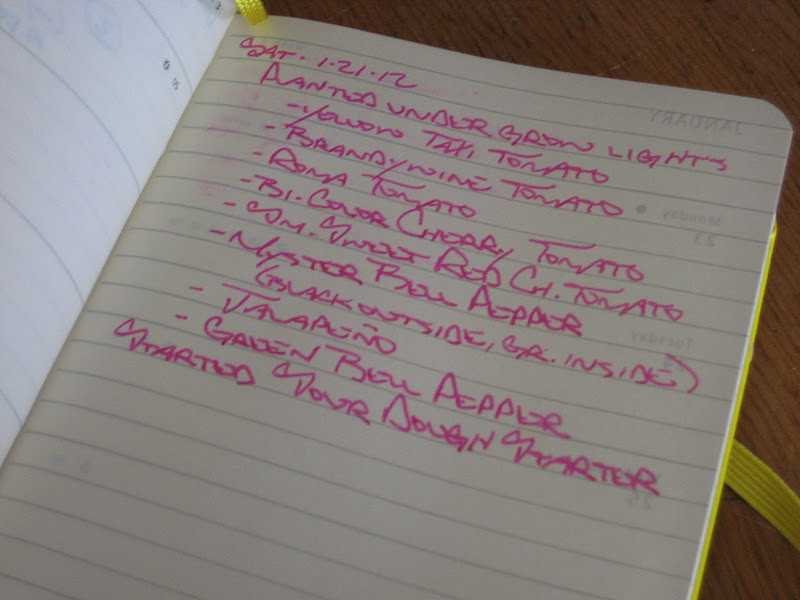 SAT. 1.21.12
PLANTED UNDER GROW LIGHTS
- YELLOW TAXI TOMATO
- BRANDYWINE TOMATO
- ROMA TOMATO
- BI-COLOR CHERRY TOMATO
- SM. SWEET RED CH. TOMATO
- MYSTER BELL PEPPER
(BLACK OUTSIDE, GR. INSIDE)
- JALAPEÑO
- GREEN BELL PEPPER
STARTED SOUR DOUGH STARTER
JANUARY
Monday
23
Tuesday